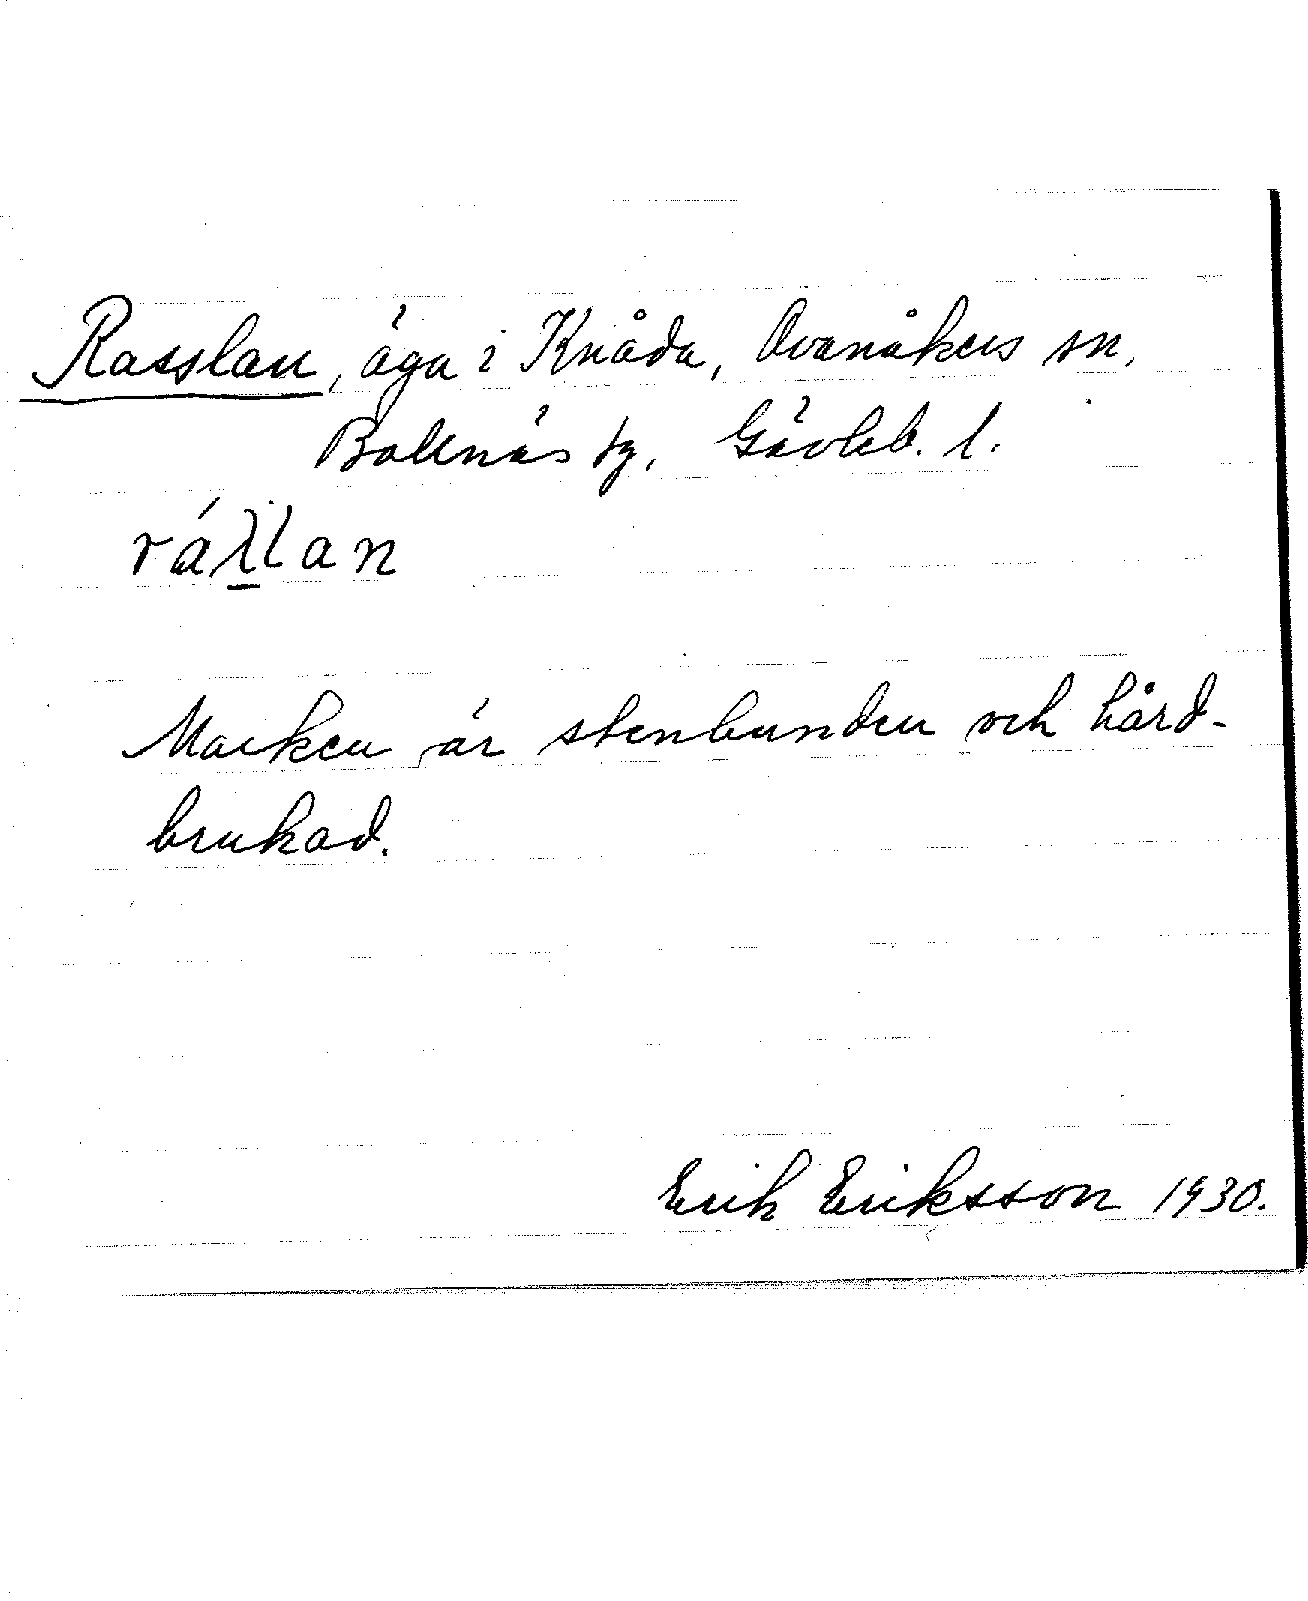 Rasslan, äga i Knåda, Ovanåkers sn,
Bollnäs tg, Gävleb. l.
ráλ̲lan
Marken är stenbunden och hård-
brukad.
Erik Eriksson 1930.